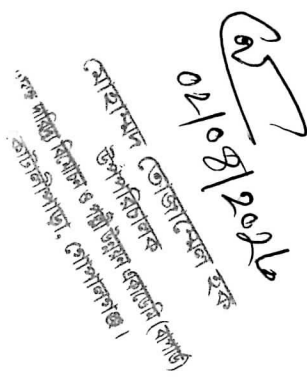 ০২/০৪/২০২৬
মোহাম্মদ তোজাম্মেল হক
উপপরিচালক
দারিদ্র্য বিমোচন ও পল্লী উন্নয়ন একাডেমি (বাপার্ড)
কোটালীপাড়া, গোপালগঞ্জ।